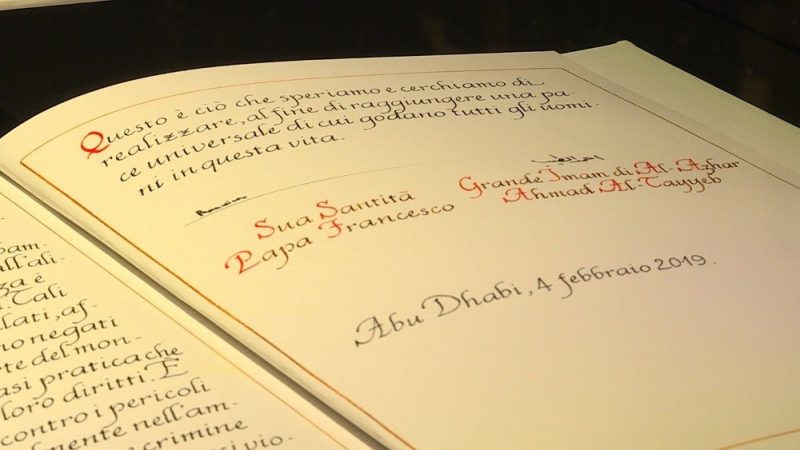 Sam-
all'ali-
za è
. Tali
lati, af-
no negati
rte del mon-
asi pratica che
loro diritti. E
contro i pericoli
lmente nell'am-
crimine
Questo è ciò che speriamo e cerchiamo di
realizzare, al fine di raggiungere una pa-
ce universale di cui godano tutti gli uomi-
ni in questa vita.
Sua Santità
Papa Francesco
Grande Imam di Al-Azhar
Ahmad Al-Tayyeb
Abu Dhabi, 4 febbraio 2019.